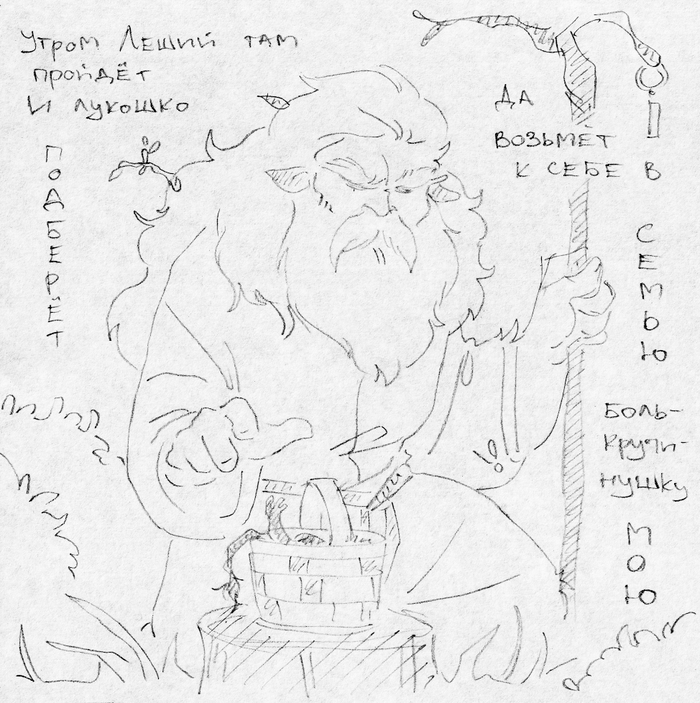 Утром Леший там
пройдёт
И лукошко
подберёт
Да
возьмет
к себе в
семью
боль-
кручи-
нушку
мою